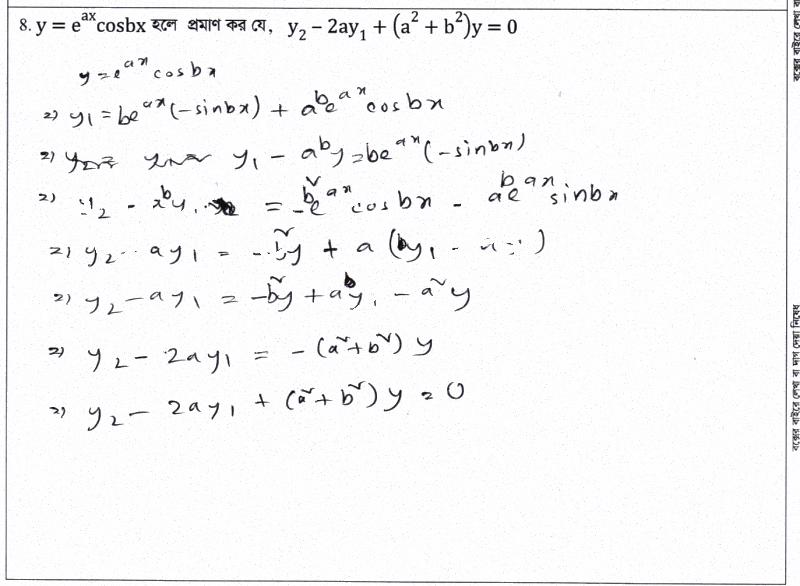 8. y = e^{ax}cosbx হলে প্রমাণ কর যে, y₂ − 2ay₁ + (a² + b²)y = 0
y = e^{ax} cosbx
⇒ y₁ = be^{ax}(−sinbx) + a^b e^{ax} cosbx
⇒ y₁ − a^b y = be^{ax}(−sinbx)
⇒ y₂ − y₁ = −b²e^{ax} cosbx − a^b e^{ax} sinbx
⇒ y₂ − ay₁ = −b²y + a(y₁ − )
⇒ y₂ − ay₁ = −b²y + ay₁ − a²y
⇒ y₂ − 2ay₁ = −(a²+b²)y
⇒ y₂ − 2ay₁ + (a²+b²)y = 0
বক্সের বাইরে লেখা বা
বক্সের বাইরে লেখা বা দাগ দেয়া নিষেধ